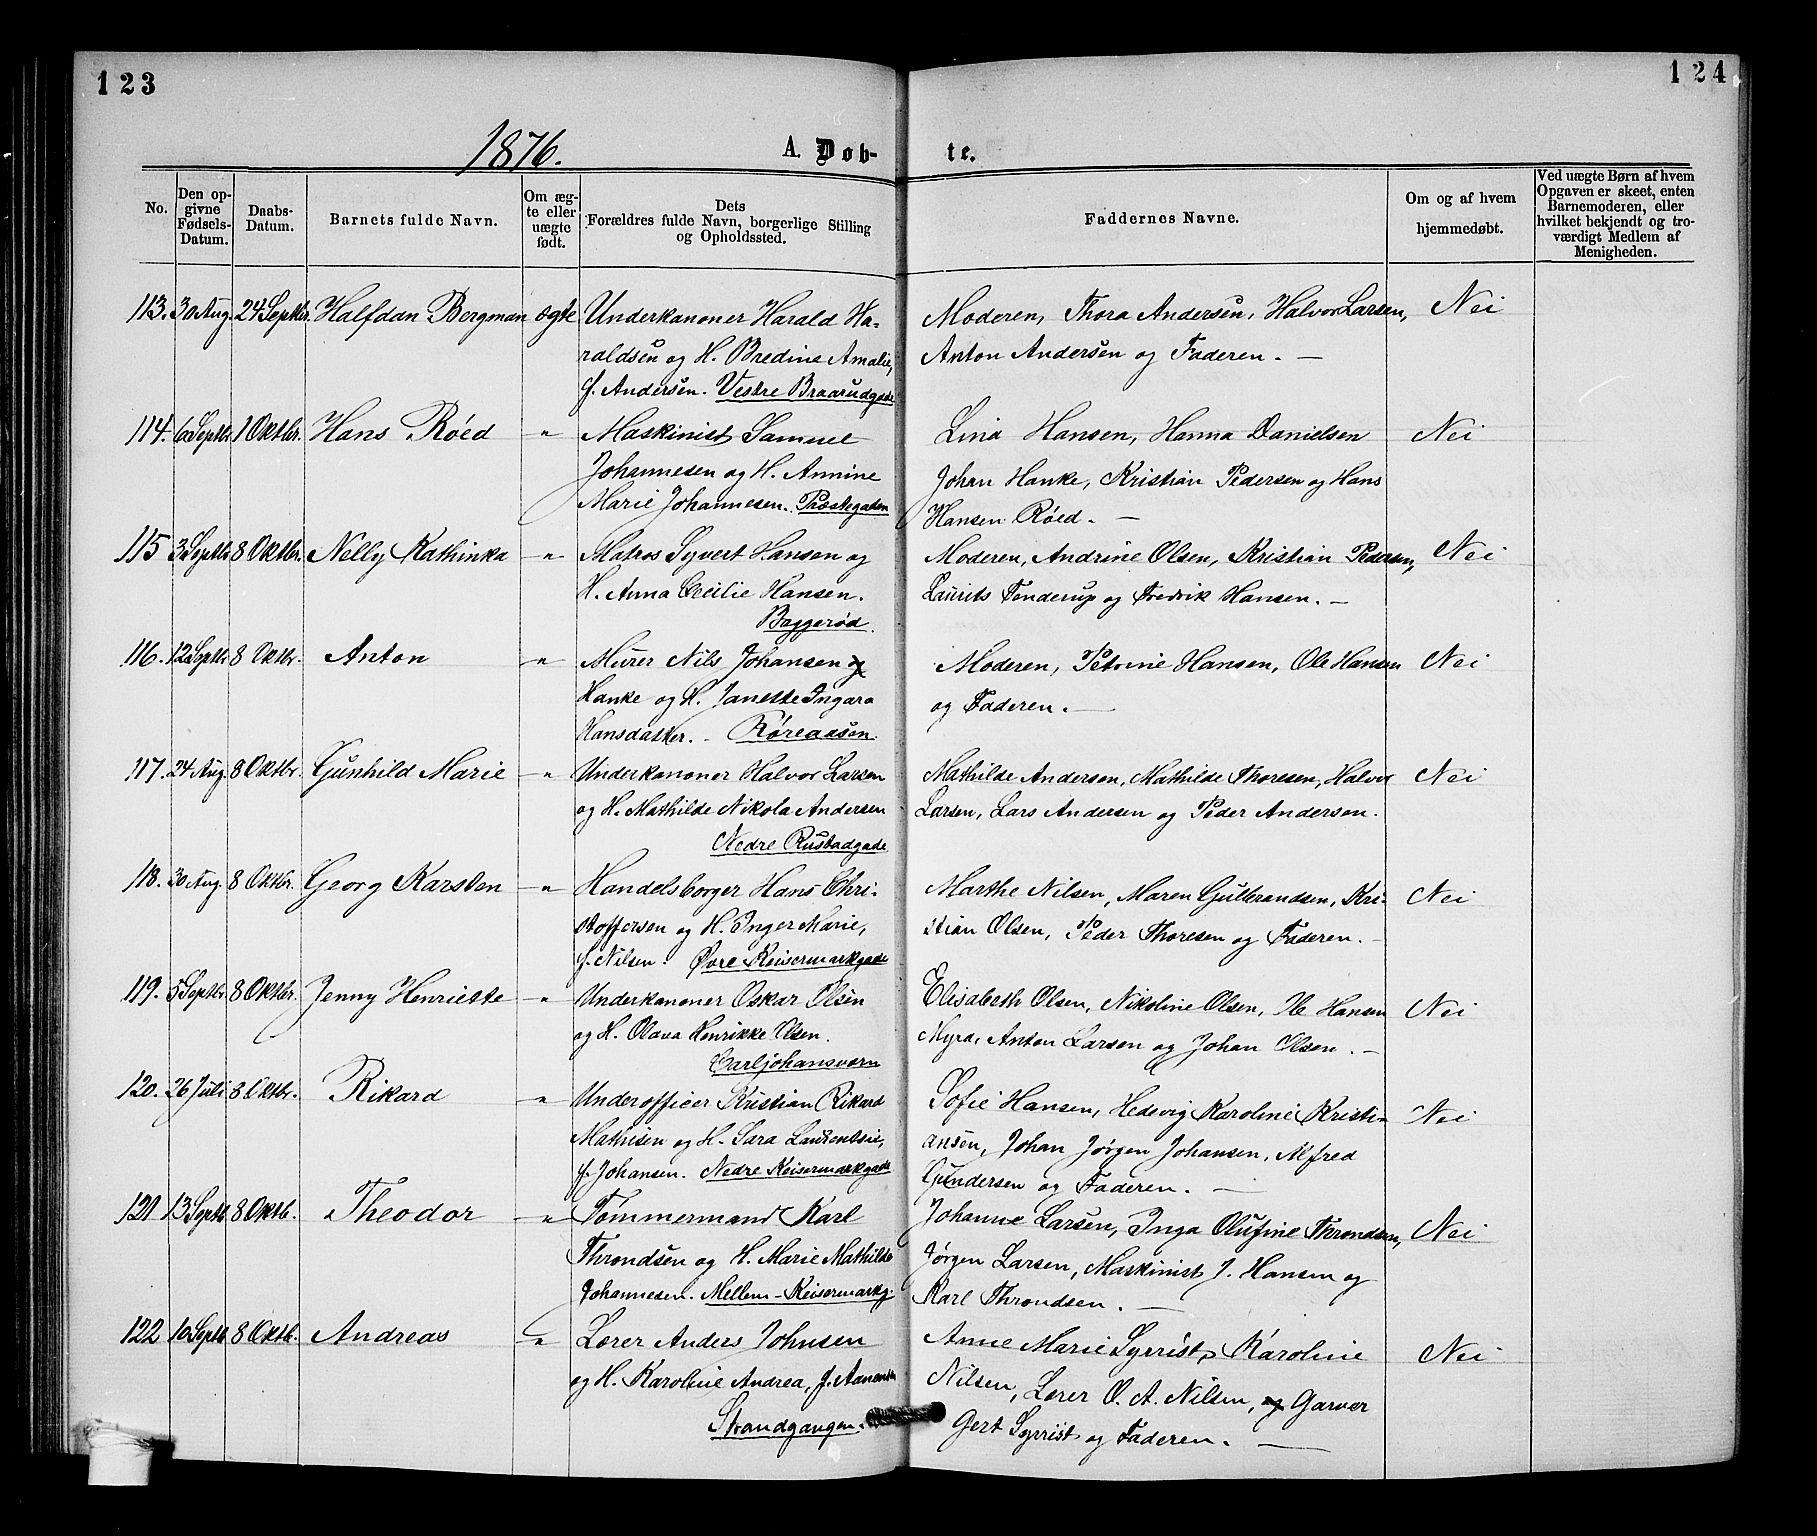 123
124
1876.
A. Døb-
te.
No.
Den op-
givne
Fødsels-
Datum.
Daabs-
Datum.
Barnets fulde Navn.
Om æg-
te eller
uægte
født.
Dets
Forældres fulde Navn, borgerlige Stilling
og Opholdssted.
Faddernes Navne.
Om og af hvem
hjemmedøbt.
Ved uægte Børn af hvem
Opgaven er skeet, enten
Barnemoderen, eller
hvilket bekjendt og tro-
værdigt Medlem af
Menigheden.
113. 30 Aug. 24 Septbr. Halfdan Bergman ægte Underkanoner Harald Ha- Moderen, Thora Andersen, Halvor Larsen, Nei
raldsen og H. Bredine Amalie, Anton Andersen og Faderen. —
f. Andersen. Vestre Braarudgade
114. 6 Septbr. 1 Oktbr. Hans Röed " Maskinist Samuel Lina Hansen, Hanna Danielsen Nei
Johannesen og H. Annine Johan Hanke, Kristian Pedersen og Hans
Marie Johannesen. Præstegaden Hansen Röed. —
115 3 Septbr. 8 Oktbr. Nelly Kathinka " Matros Syvert Hansen og Moderen, Andrine Olsen, Kristian Pedersen, Nei
H. Anna Cecilie Hansen. Laurits Tenderup og Fredrik Hansen. —
Baggerød.
116. 12 Septbr. 8 Oktbr. Anton " Murer Nils Johansen og Moderen, Petrine Hansen, Ole Hansen Nei
Hanke og H. Janette Ingara og Faderen. —
Hansdatter. Röreaasen.
117. 24 Aug. 8 Oktbr. Gunhild Marie " Underkanoner Halvor Larsen Mathilde Andersen, Mathilde Thoresen, Halvor Nei
og H. Mathilde Nikola Andersen Larsen, Lars Andersen og Peder Andersen.
Nedre Rustadgade
118. 30 Aug. 8 Oktbr. Georg Karsten " Handelsborger Hans Chri- Marthe Nilsen, Maren Gulbrandsen, Kri- Nei
stoffersen og H. Inger Marie, stian Olsen, Peder Thoresen og Faderen. —
f. Nilsen. Øvre Keisermarkgade
119. 5 Septbr. 8 Oktbr. Jenny Henriette " Underkanoner Oskar Olsen Elisabeth Olsen, Nikoline Olsen, Ole Hansen Nei
og H. Olava Henrikke Olsen. Myra, Anton Larsen og Johan Olsen. —
Carljohansværn
120. 26 Juli 8 Oktbr. Rikard " Underofficer Kristian Rikard Sofie Hansen, Hedevig Karoline Kristi- Nei
Mathisen og H. Sara Laurentsie, ansen, Johan Jørgen Johansen, Alfred
f. Johansen. Nedre Keisermarkgade Gundersen og Faderen. —
121 13 Septb. 8 Oktb. Theodor " Tömmermand Karl Johanne Larsen, Inga Olufine Throndsen, Nei
Throndsen og H. Marie Mathilde Jørgen Larsen, Maskinist J. Hansen og
Johannesen. Mellem-Keisermarkg. Karl Throndsen. —
122 10 Septb. 8 Oktb. Andreas " Lærer Anders Johnsen Anne Marie Syrrist, Karoline Nei
og H. Karoline Andrea, f. Aanensen Nilsen, Lærer O. A. Nilsen, og Garver
Strandgangen. Gert Syrrist og Faderen. —